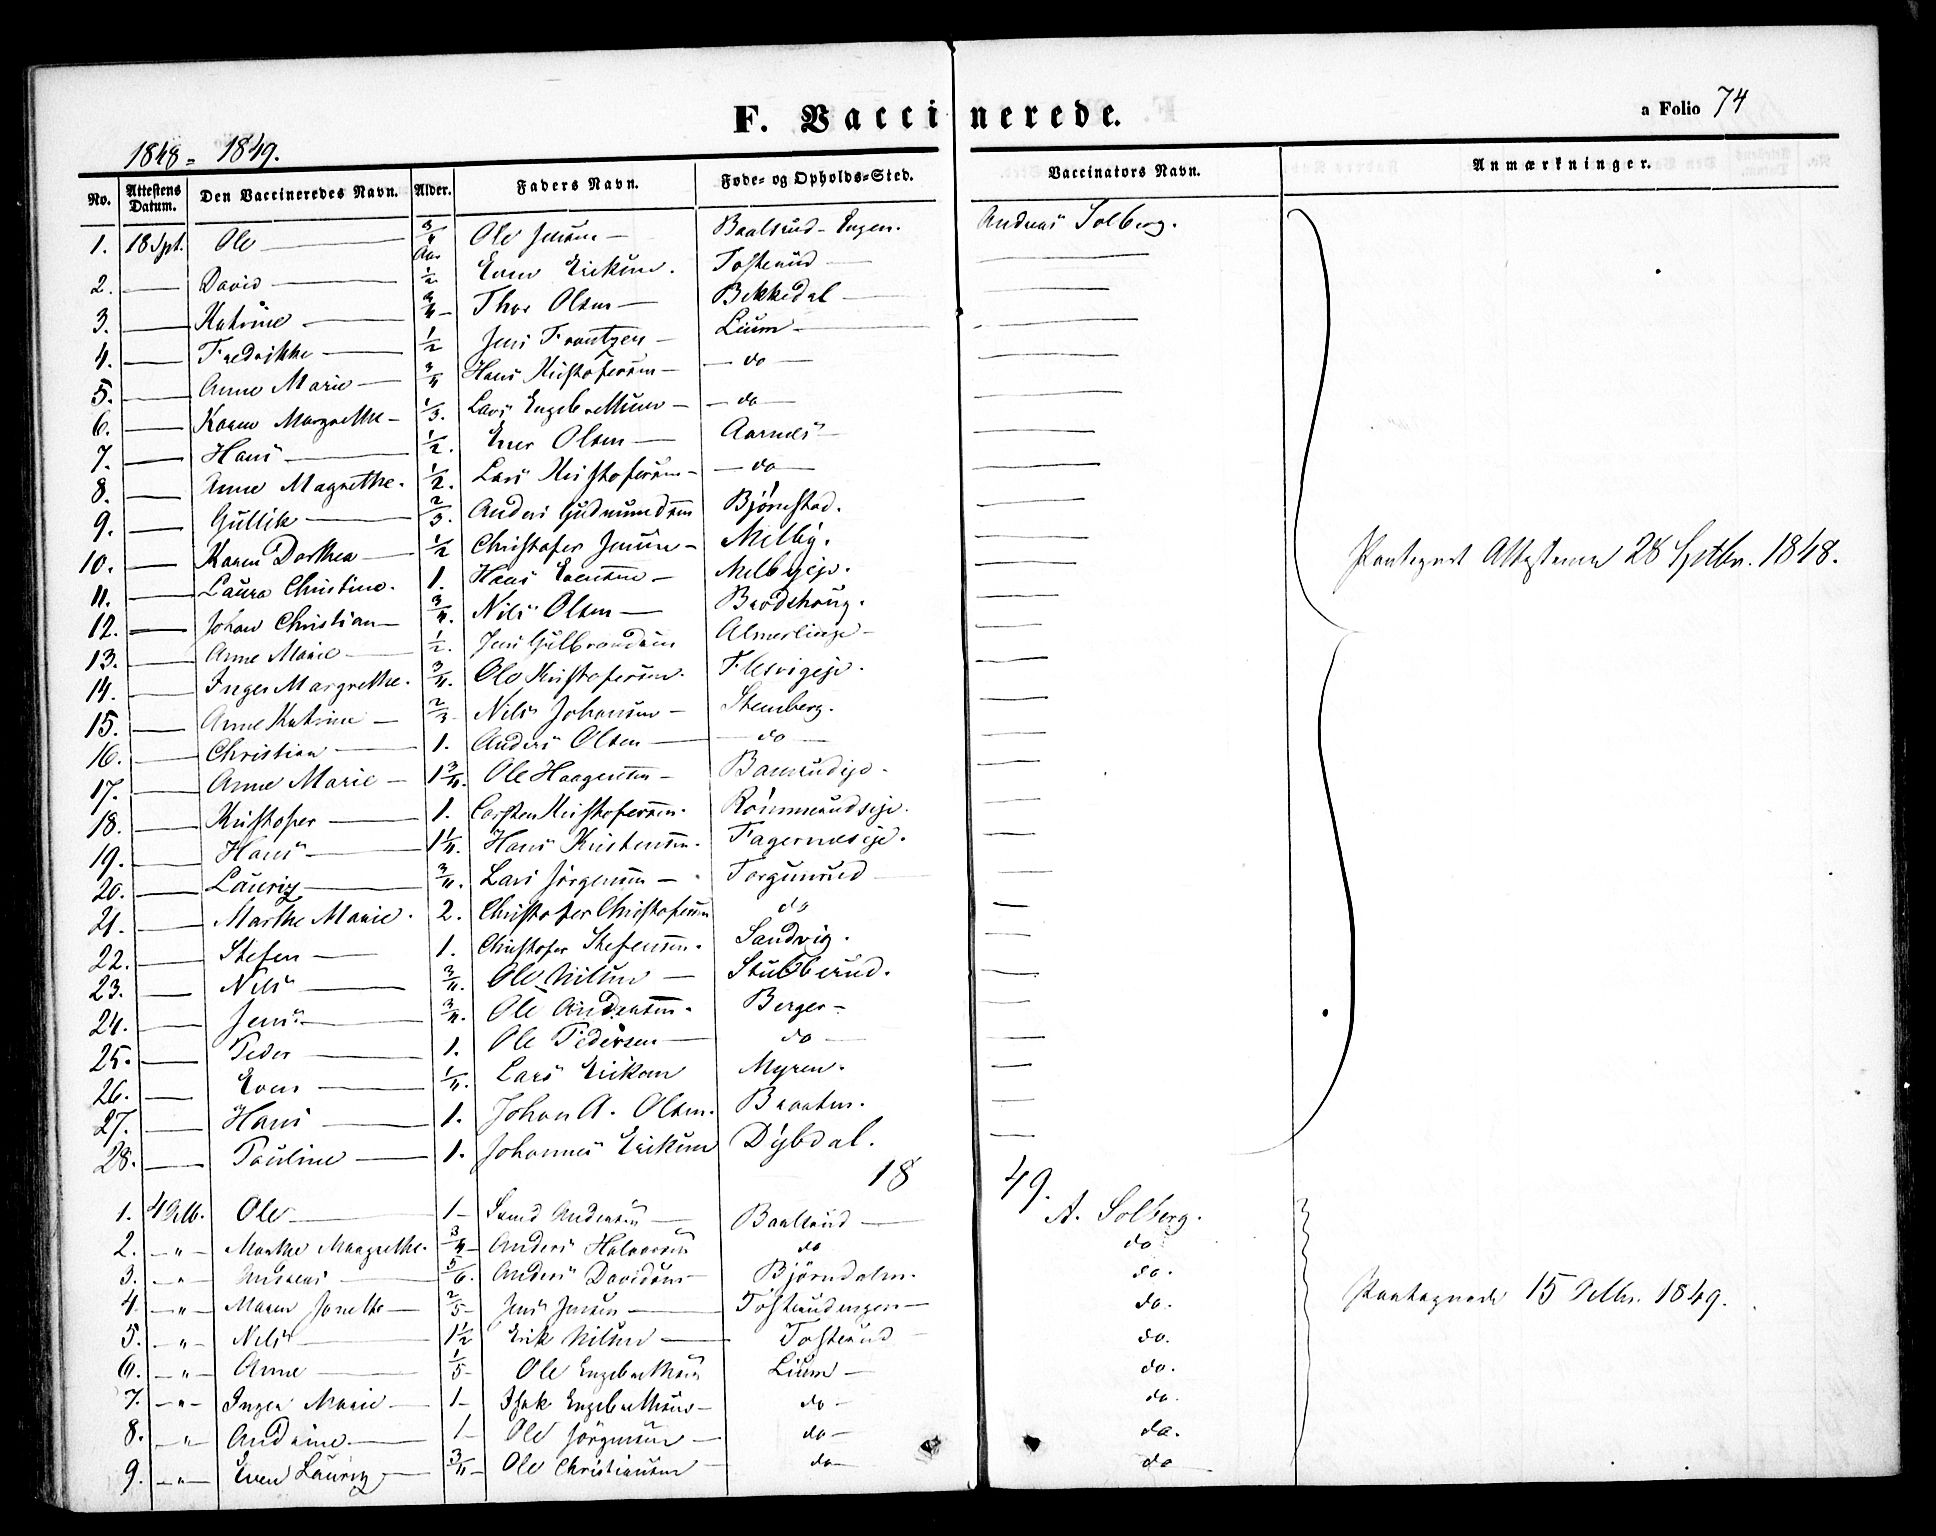 F. Vaccinerede.
a Folio 74
1848 = 1849.
No. Attestens Datum. Den Vaccineredes Navn. Alder. Faders Navn. Føde- og Opholds-Sted. Vaccinators Navn. Anmærkninger.
1. 18 Spt. Ole — 3/4 Aar Ole Jensen — Baalsrud-Engen. Andreas Solberg.
2. — David — 1/2 Even Eriksen. Tosterud —
3. — Katrine — 3/4 — Thor Olsen — Bekkedal —
4. — Fredrikke — 1/2 Jens Frantzen — Lium —
5. — Anne Marie — 3/4 Hans Kristofersen — — do —
6. — Karen Margrethe — 1/3. Lars Engebrethsen — — do —
7. — Hans — 1/2. Even Olsen — Aarnes —
8. — Anne Magrethe. 1/2. Lars Kristofersen — — do —
9. — Gullik — 2/3. Anders Gudmundsen Bjørnstad.
10. — Karen Dorthea — 1/2 Christofer Jensen — Melby. Paategnet Attesterne 28 Septbr. 1848.
11. — Laura Christine. 1. Hans Evensen — Melbyeje.
12. — Johan Christian — 3/4. Nils Olsen — Brodshaug.
13. — Anne Marie — 1/2. Jens Gulbrandsen Almerlinge —
14. — Inger Margrethe. 3/4. Ole Kristofersen. Flesvigeje.
15. — Anne Katrine — 2/3 — Nils Johansen — Stenberg.
16. — Christian — 1. Anders Olsen — — do —
17. — Anne Marie — 1 3/4. Ole Haagensen — Baserudeje.
18. — Kristofer — 1. Carsten Kristofersen. Rømmerudseje.
19. — Hans — 1 1/4. Hans Kristensen. Fagerneseje.
20. — Lauritz — 3/4. Lars Jørgensen — Torgunrud —
21. — Marthe Marie. 2. Christofer Christofersen do
22. — Stefen — 1. Christofer Stefensen. Sandvig.
23. — Nils — 3/4. Ole Nilsen — Stubberud.
24. — Jens — 3/4. Ole Andersen. Berger —
25. — Peder — 1. Ole Pedersen — do —
26. — Even — 1/4. Lars Eriksen Myren.
27. — Hans — 1. Johan A. Olsen. Braaten.
28. — Pauline — 1. Johannes Eriksen Dybdal.
18 49.
1. Ole — 1 — Andersen — Baalsrud — A. Solberg.
2. — " — Marthe Maagrethe. 3/4 — Anders Halvorsen do do
3. — " 5/6. Anders Davidsen — Bjørndalen. do.
4. — " — Maren Janette — 2/5 — Jens Jensen — Tosterudengen — do. Paategnede 15 1849.
5. — " — Nils — 1 1/2 Erik Nilsen — Tosterud — do.
6. — " — Anne — 1/5 — Ole Engebrethsen Lium — do.
7. — " — Inger Marie — 1 — Isak Engebrethsen — do — do.
8. — " Andrine. — 1 — Ole Jörgensen — do — da.
9. — " — Even Lauritz — 3/4 — Ole Christiansen do — do